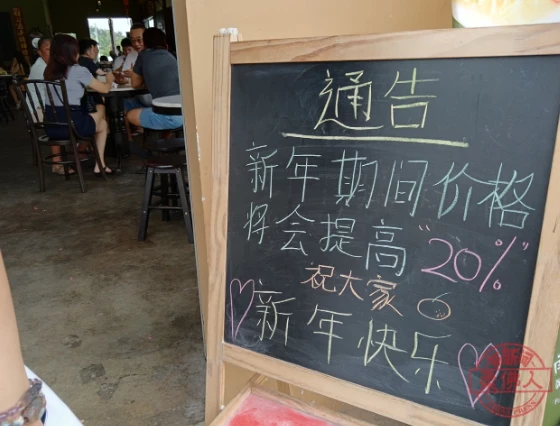 通告
新年期间价格
将会提高"20%"
祝大家
新年快乐